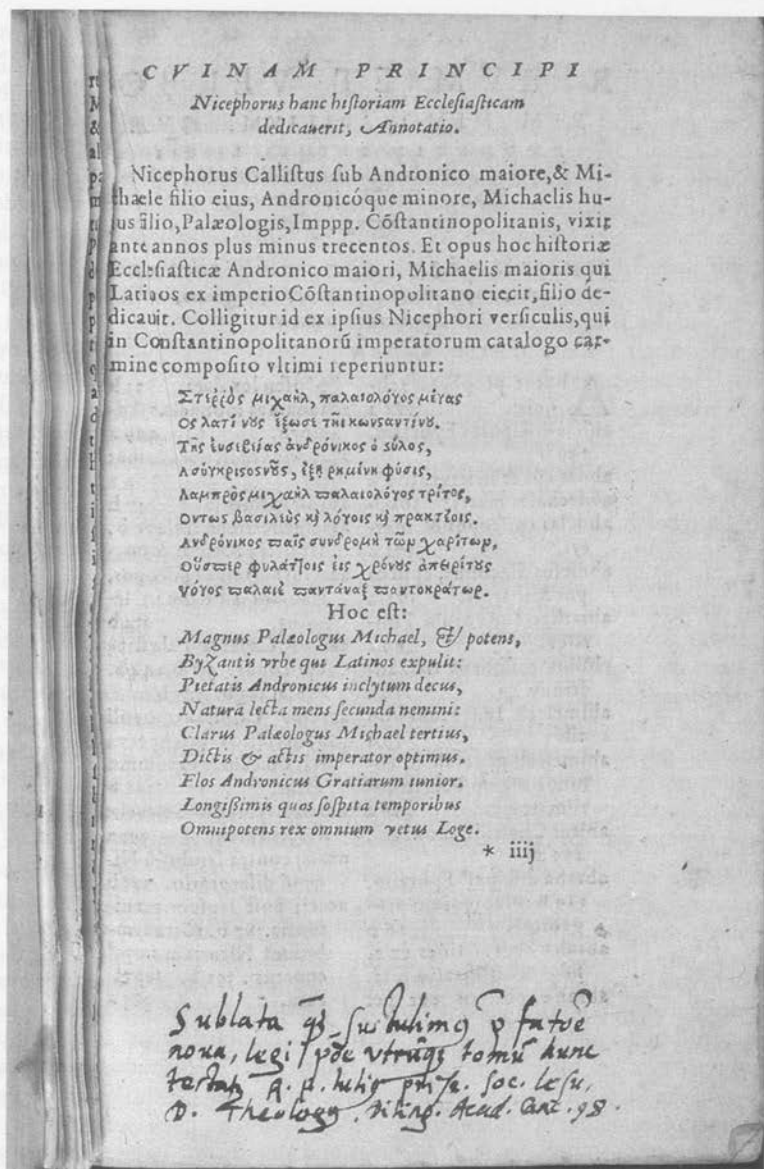 CVINAM PRINCIPI
Nicephorus hanc hiſtoriam Eccleſiaſticam
dedicauerit, Annotatio.
Nicephorus Calliſtus ſub Andronico maiore,& Mi-
chaele filio eius, Andronicóque minore, Michaelis hu-
ius filio,Palæologis,Imppp. Cõſtantinopolitanis, vixit
ante annos plus minus trecentos. Et opus hoc hiſtoriæ
Eccleſiaſticæ Andronico maiori, Michaelis maioris qui
Latinos ex imperio Cõſtantinopolitano eiecit,filio de-
dicauit. Colligitur id ex ipſius Nicephori verſiculis,qui
in Conſtantinopolitanorũ imperatorum catalogo car-
mine compoſito vltimi reperiuntur:
Στερρὸς μιχαὴλ, παλαιολόγος μέγας
Ος λατίνους ἔξωσε τῆς κωνσαντίνου.
Τῆς εὐσεβείας ἀνδρόνικος ὁ ςύλος,
Ασύγκριςος νοῦς, ἐξῃρημένη φύσις,
Λαμπρὸς μιχαὴλ παλαιολόγος τρίτος,
Οντως βασιλεὺς κỳ λόγοις κỳ πρακτέοις.
Ανδρόνικος παῖς συνδρομὴ τῶν χαρίτων,
Οὕσπερ φυλάττοις εἰς χρόνους ἀπείρους
λόγε παλαιὲ παντάναξ παντοκράτωρ.
Hoc eſt:
Magnus Palæologus Michael, & potens,
Byzantis vrbe qui Latinos expulit:
Pietatis Andronicus inclytum decus,
Natura lecta mens ſecunda nemini:
Clarus Palæologus Michael tertius,
Dictis & actis imperator optimus.
Flos Andronicus Gratiarum iunior.
Longißimis quos ſoſpita temporibus
Omnipotens rex omnium vetus Loge.
* iiij
Sublata
noua, legi tomũ hunc
Soc. Ieſu,
D. Theology. Diling. Acad. Canc. 98.